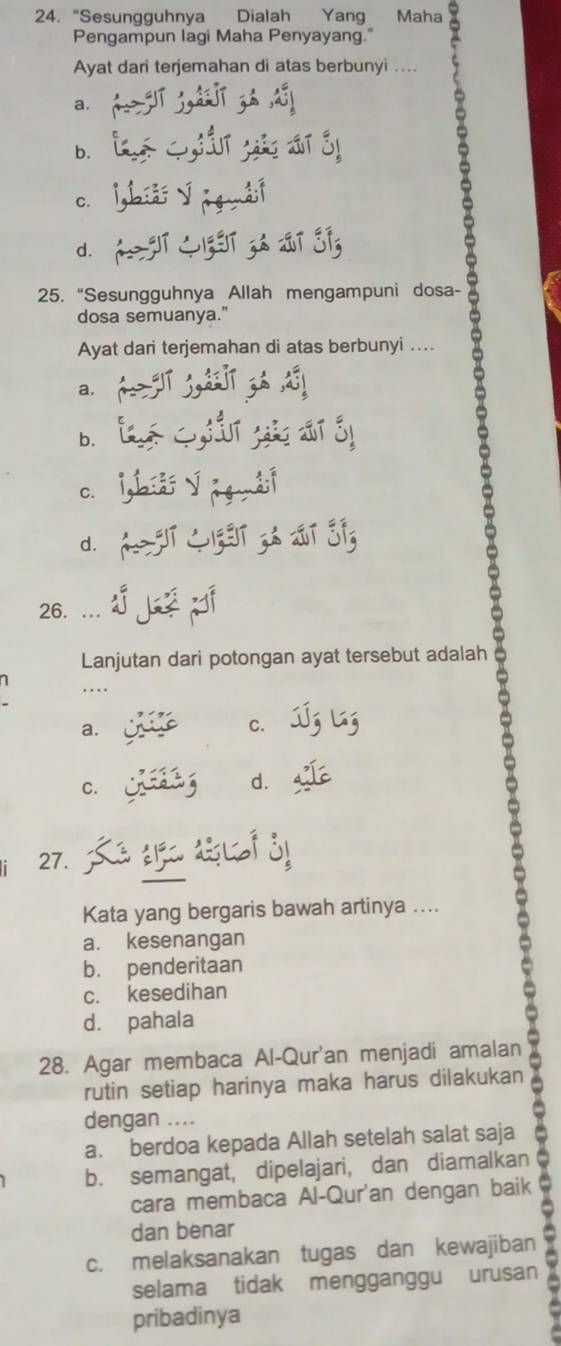 24. "Sesungguhnya Dialah Yang Maha
Pengampun lagi Maha Penyayang."
Ayat dari terjemahan di atas berbunyi ....
a. إِنَّهُ هُوَ الْغَفُوْرُ الرَّحِيْمُ
b. إِنَّ اللّٰهَ يَغْفِرُ الذُّنُوْبَ جَمِيْعًا
c. أَنْفُسِهِمْ لَا تَقْنَطُوْا
d. وَأَنَّ اللّٰهَ هُوَ التَّوَّابُ الرَّحِيْمُ
25. "Sesungguhnya Allah mengampuni dosa-
dosa semuanya."
Ayat dari terjemahan di atas berbunyi ....
a. إِنَّهُ هُوَ الْغَفُوْرُ الرَّحِيْمُ
b. إِنَّ اللّٰهَ يَغْفِرُ الذُّنُوْبَ جَمِيْعًا
c. أَنْفُسِهِمْ لَا تَقْنَطُوْا
d. وَأَنَّ اللّٰهَ هُوَ التَّوَّابُ الرَّحِيْمُ
26. ... أَلَمْ نَجْعَلْ لَّهُ
Lanjutan dari potongan ayat tersebut adalah
....
a. عَيْنَيْنِ c. وَمَا وَلَدَ
c. وَشَفَتَيْنِ d. عَلَيْهِ
27. إِنْ أَصَابَتْهُ سَرَّاءُ شَكَرَ
Kata yang bergaris bawah artinya ....
a. kesenangan
b. penderitaan
c. kesedihan
d. pahala
28. Agar membaca Al-Qur'an menjadi amalan
rutin setiap harinya maka harus dilakukan
dengan ....
a. berdoa kepada Allah setelah salat saja
b. semangat, dipelajari, dan diamalkan
cara membaca Al-Qur'an dengan baik
dan benar
c. melaksanakan tugas dan kewajiban
selama tidak mengganggu urusan
pribadinya